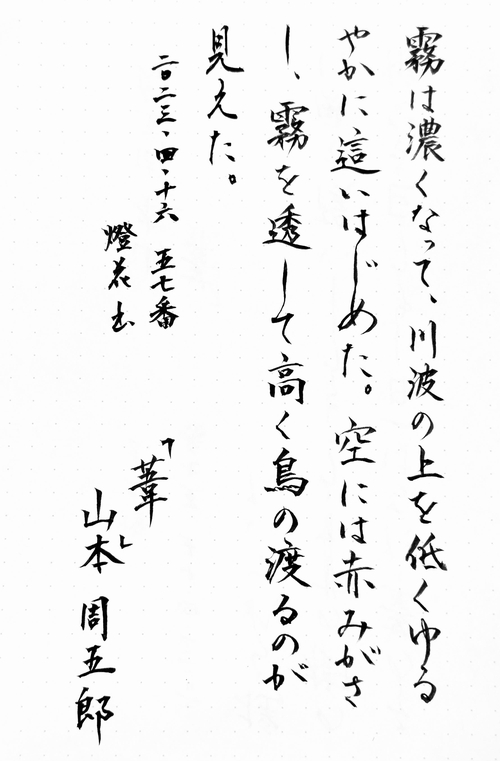 霧は濃くなって、川波の上を低くゆる
やかに這いはじめた。空には赤みがさ
し、霧を透して高く鳥の渡るのが
見えた。
二〇二三、四、十六 五七番
燈花書
「葦」
山本周五郎